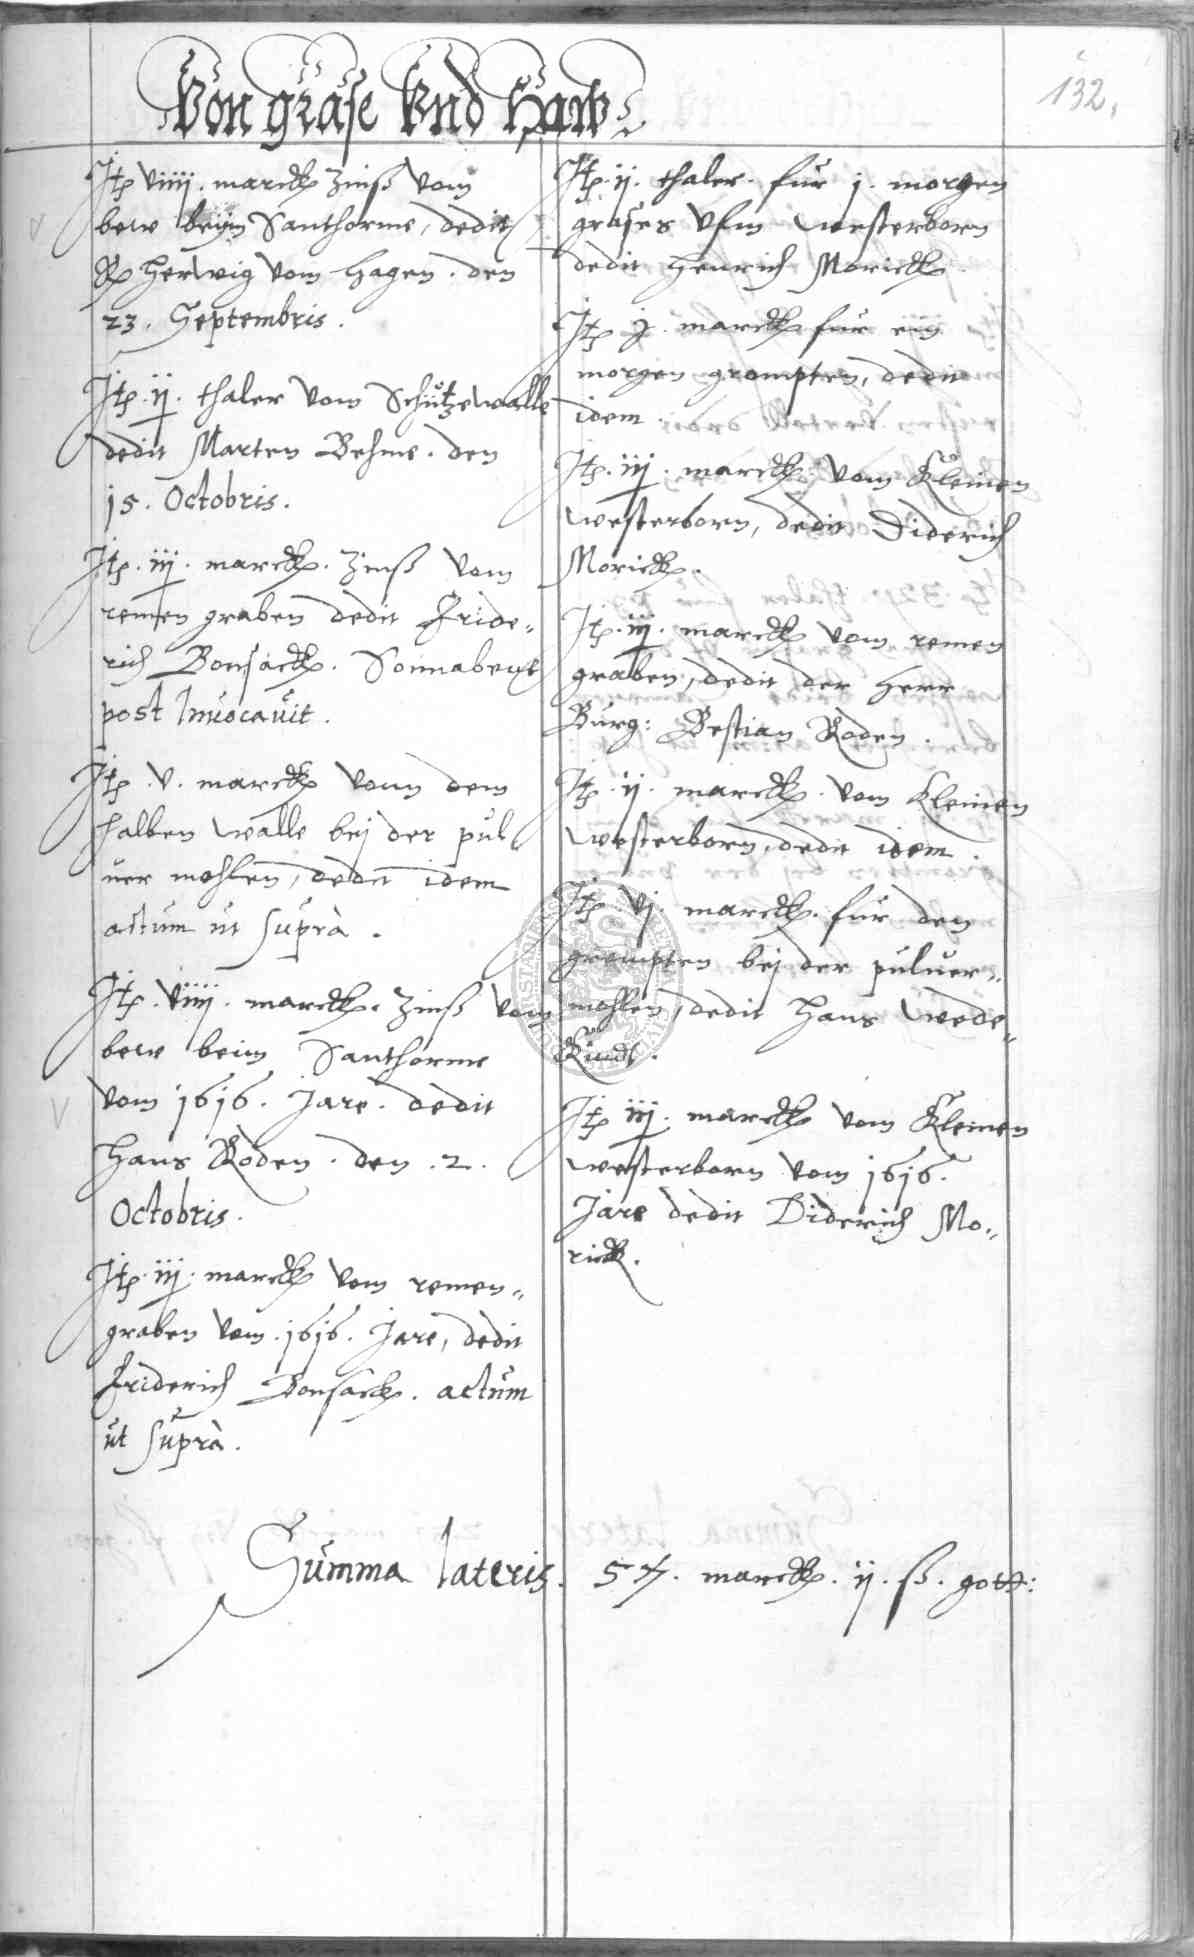 132.
Von graße vnd Haw
Itp viiij. marck zinß vom
hew beim Santhorme, dedit
H herwig vom hagen. den
23. Septembris.
Itp. ij. thaler vom Schützewalle
dedit Marten Behme. den
15. Octobris.
Itp. iij. marck. zinß vom
remen graben dedit Fride„
rich Bonsack. Sonnabent
post Inuocauit.
Itp. v. marck vonn dem
halben walle bej der pul
uer mohlen, dedit idem
actum ut supra.
Itp. viiij. marck. zinß vom
hew beim Santhorme
vom 1616. Jare. dedit
Hans Roden. den. 2.
Octobris.
Itp. iij. marck vom remen„
graben vom. 1616. Jare, dedit
Friderich Bonsack. actum
ut supra.
Itp. ij. thaler. fur j. morgen
grases vfm westerborn
dedit Henrich Morick
Itp j. marck fur ein
morgen grompten, dedit
idem.
Itp. iij. marck vom Kleinen
westerborn, dedit Diderich
Morick.
Itp. iij. marck vom remen
graben, dedit der herr
Burg: Bestian Roden.
Itp. ij. marck. vom Kleinen
westerborn, dedit idem.
Itp. vj. marck. fur den
grompten bej der puluer„
mohlen, dedit Hans Wede„
Kindt.
Itp iij. marck vom Kleinen
westerborn vom 1616.
Jare dedit Diderich Mo„
rick.
Summa lateris. 57. marck. ij. ß. gott: